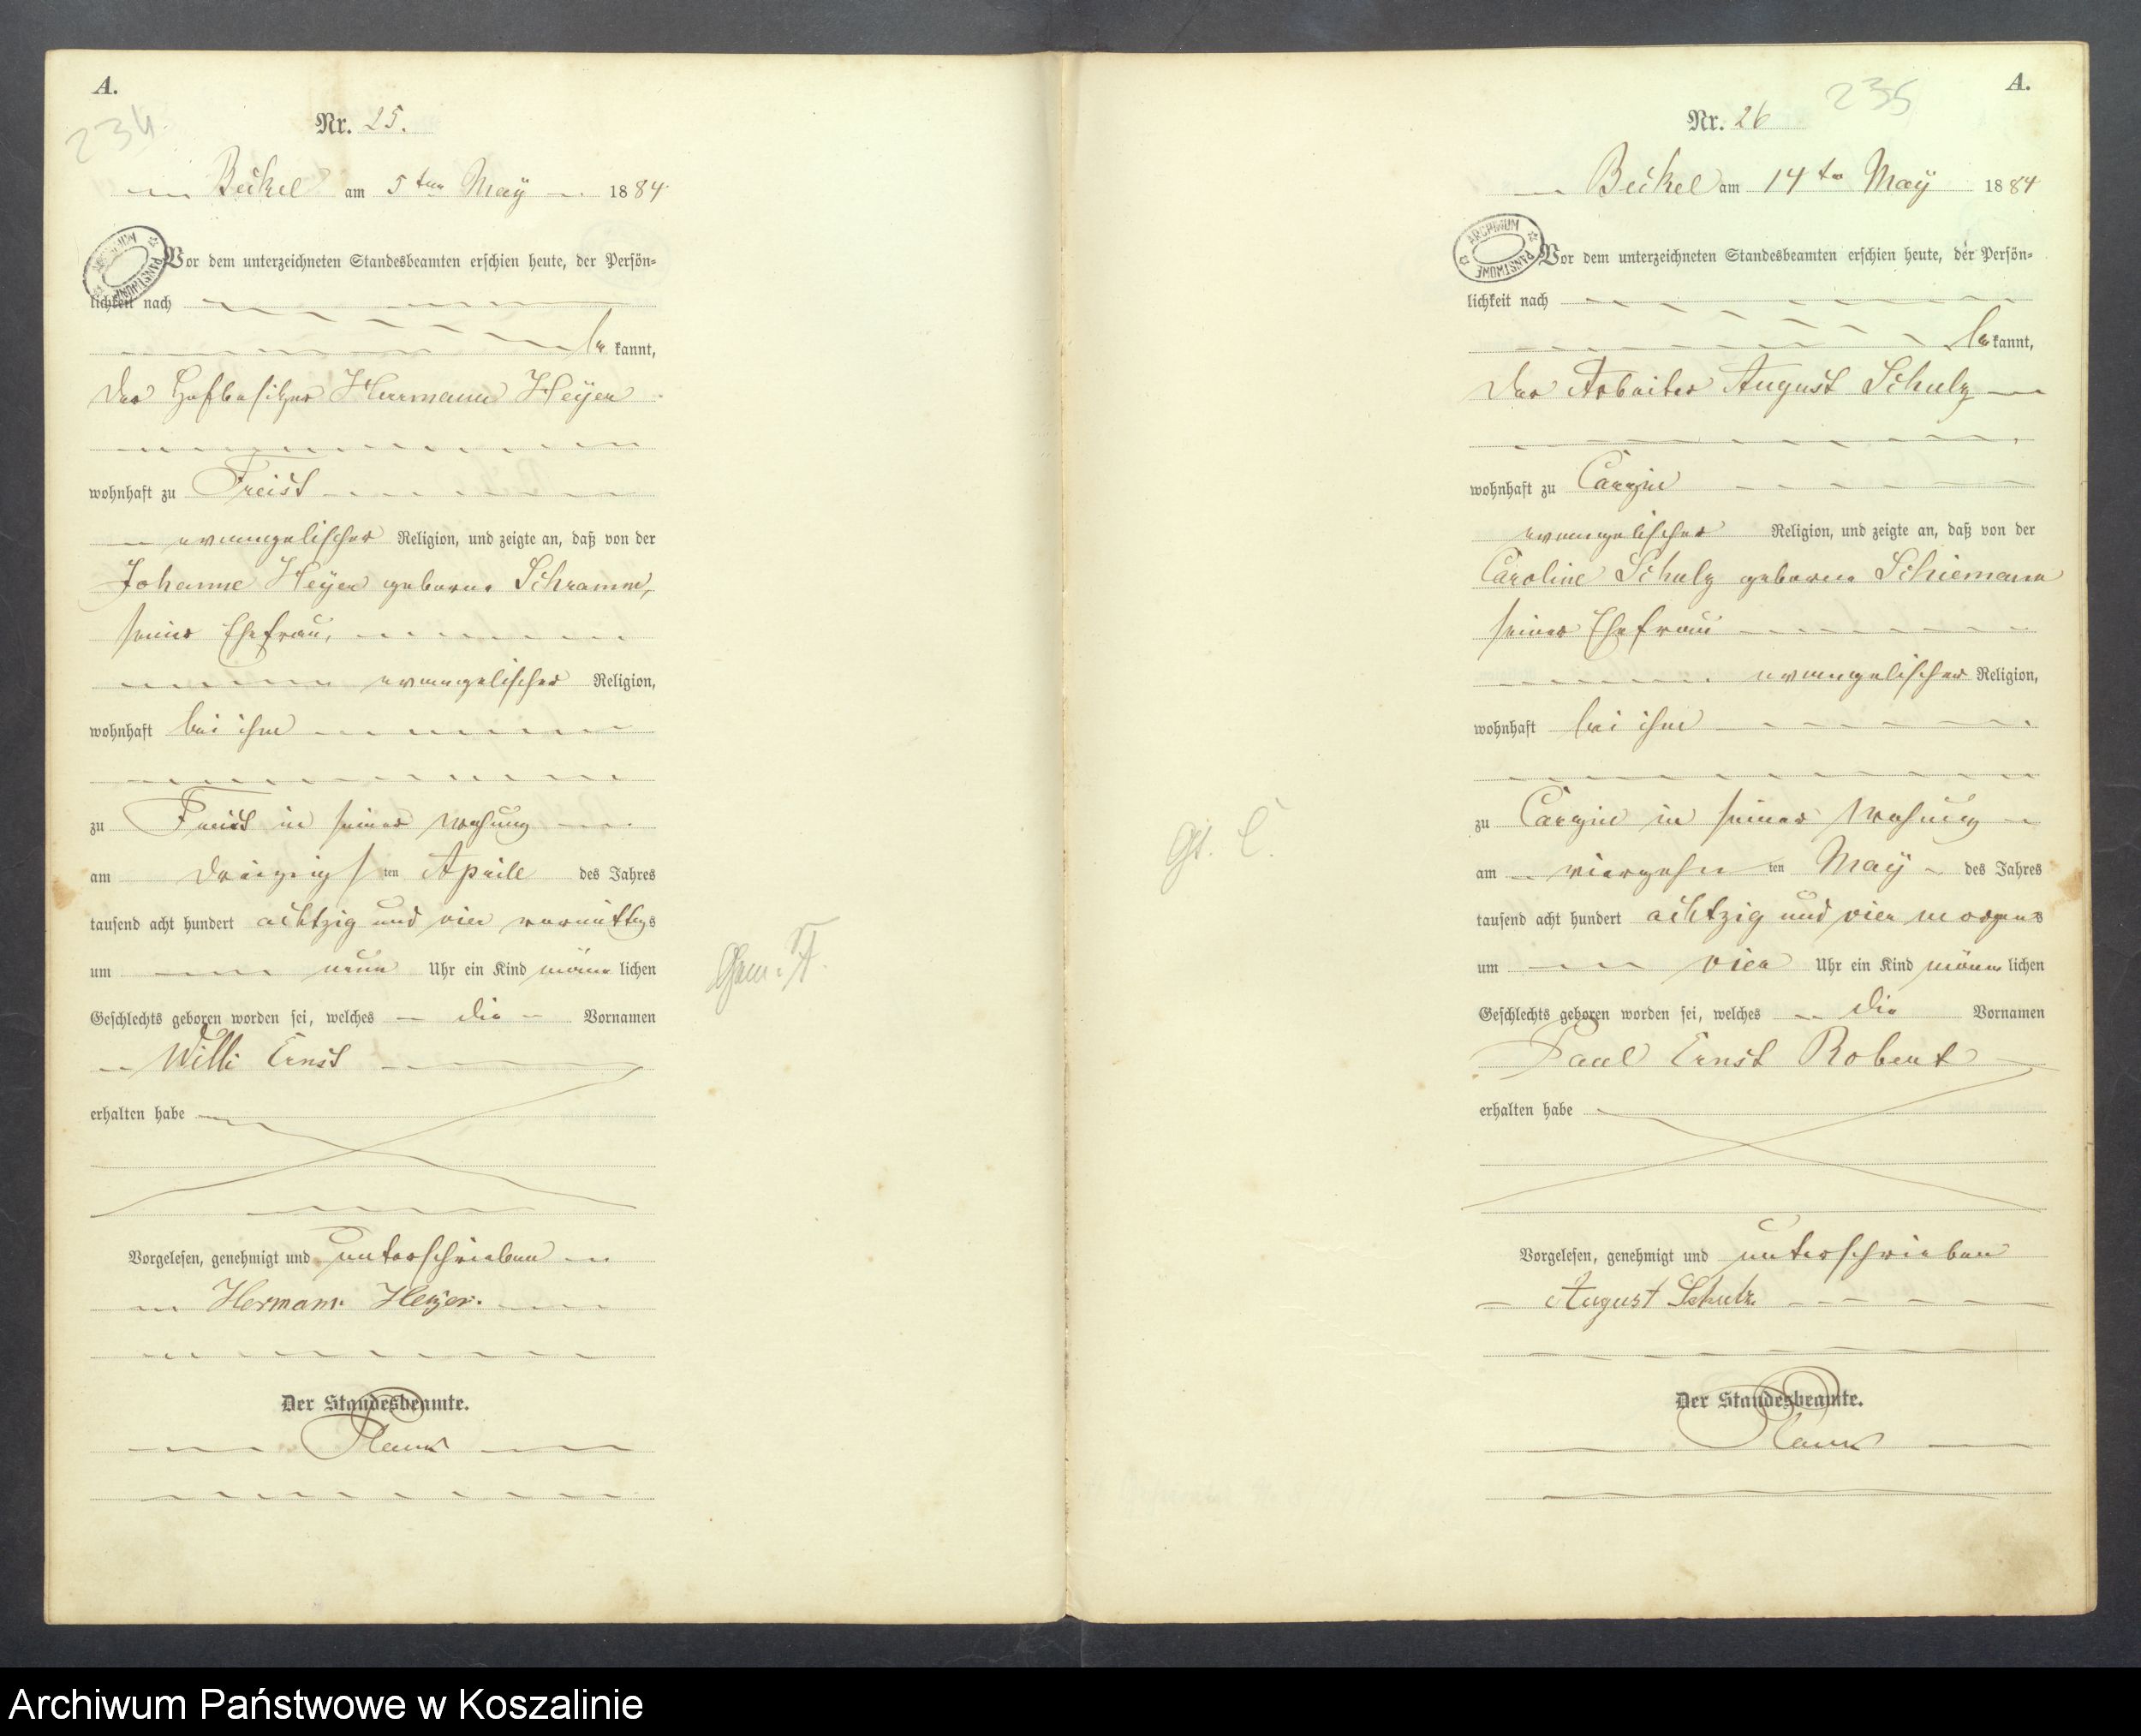 A.
234
Nr. 25.
Beckel am 5ten May 1884
ARCHIWUM PAŃSTWOWE
Vor dem unterzeichneten Standesbeamten erschien heute, der Persön=
lichkeit nach
be kannt,
der Hofbesitzer Herrmann Heyer
wohnhaft zu Freist
evangelischer Religion, und zeigte an, daß von der
Johanne Heyer geborne Schramm,
seiner Ehefrau,
evangelischer Religion,
wohnhaft bei ihm
zu Freist in seiner Wohnung
am dreizigsten Aprill des Jahres
tausend acht hundert achtzig und vier vormittags
um neun Uhr ein Kind männ lichen
Geschlechts geboren worden sei, welches die Vornamen
Willi Ernst
erhalten habe
Vorgelesen, genehmigt und unterschrieben
Hermann Heyer.
Der Standesbeamte.
A.
235
Nr. 26
Beckel am 14ten May 1884
ARCHIWUM PAŃSTWOWE
Vor dem unterzeichneten Standesbeamten erschien heute, der Persön=
lichkeit nach
be kannt,
der Arbeiter August Schulz
wohnhaft zu Carzin
evangelischer Religion, und zeigte an, daß von der
Caroline Schulz geborne Schiemann
seiner Ehefrau
evangelischer Religion,
wohnhaft bei ihm
zu Carzin in seiner Wohnung
am vierzehn ten May des Jahres
tausend acht hundert achtzig und vier morgens
um vier Uhr ein Kind männ lichen
Geschlechts geboren worden sei, welches die Vornamen
Paul Ernst Robert
erhalten habe
Vorgelesen, genehmigt und unterschrieben
August Schulz
Der Standesbeamte.
Archiwum Państwowe w Koszalinie